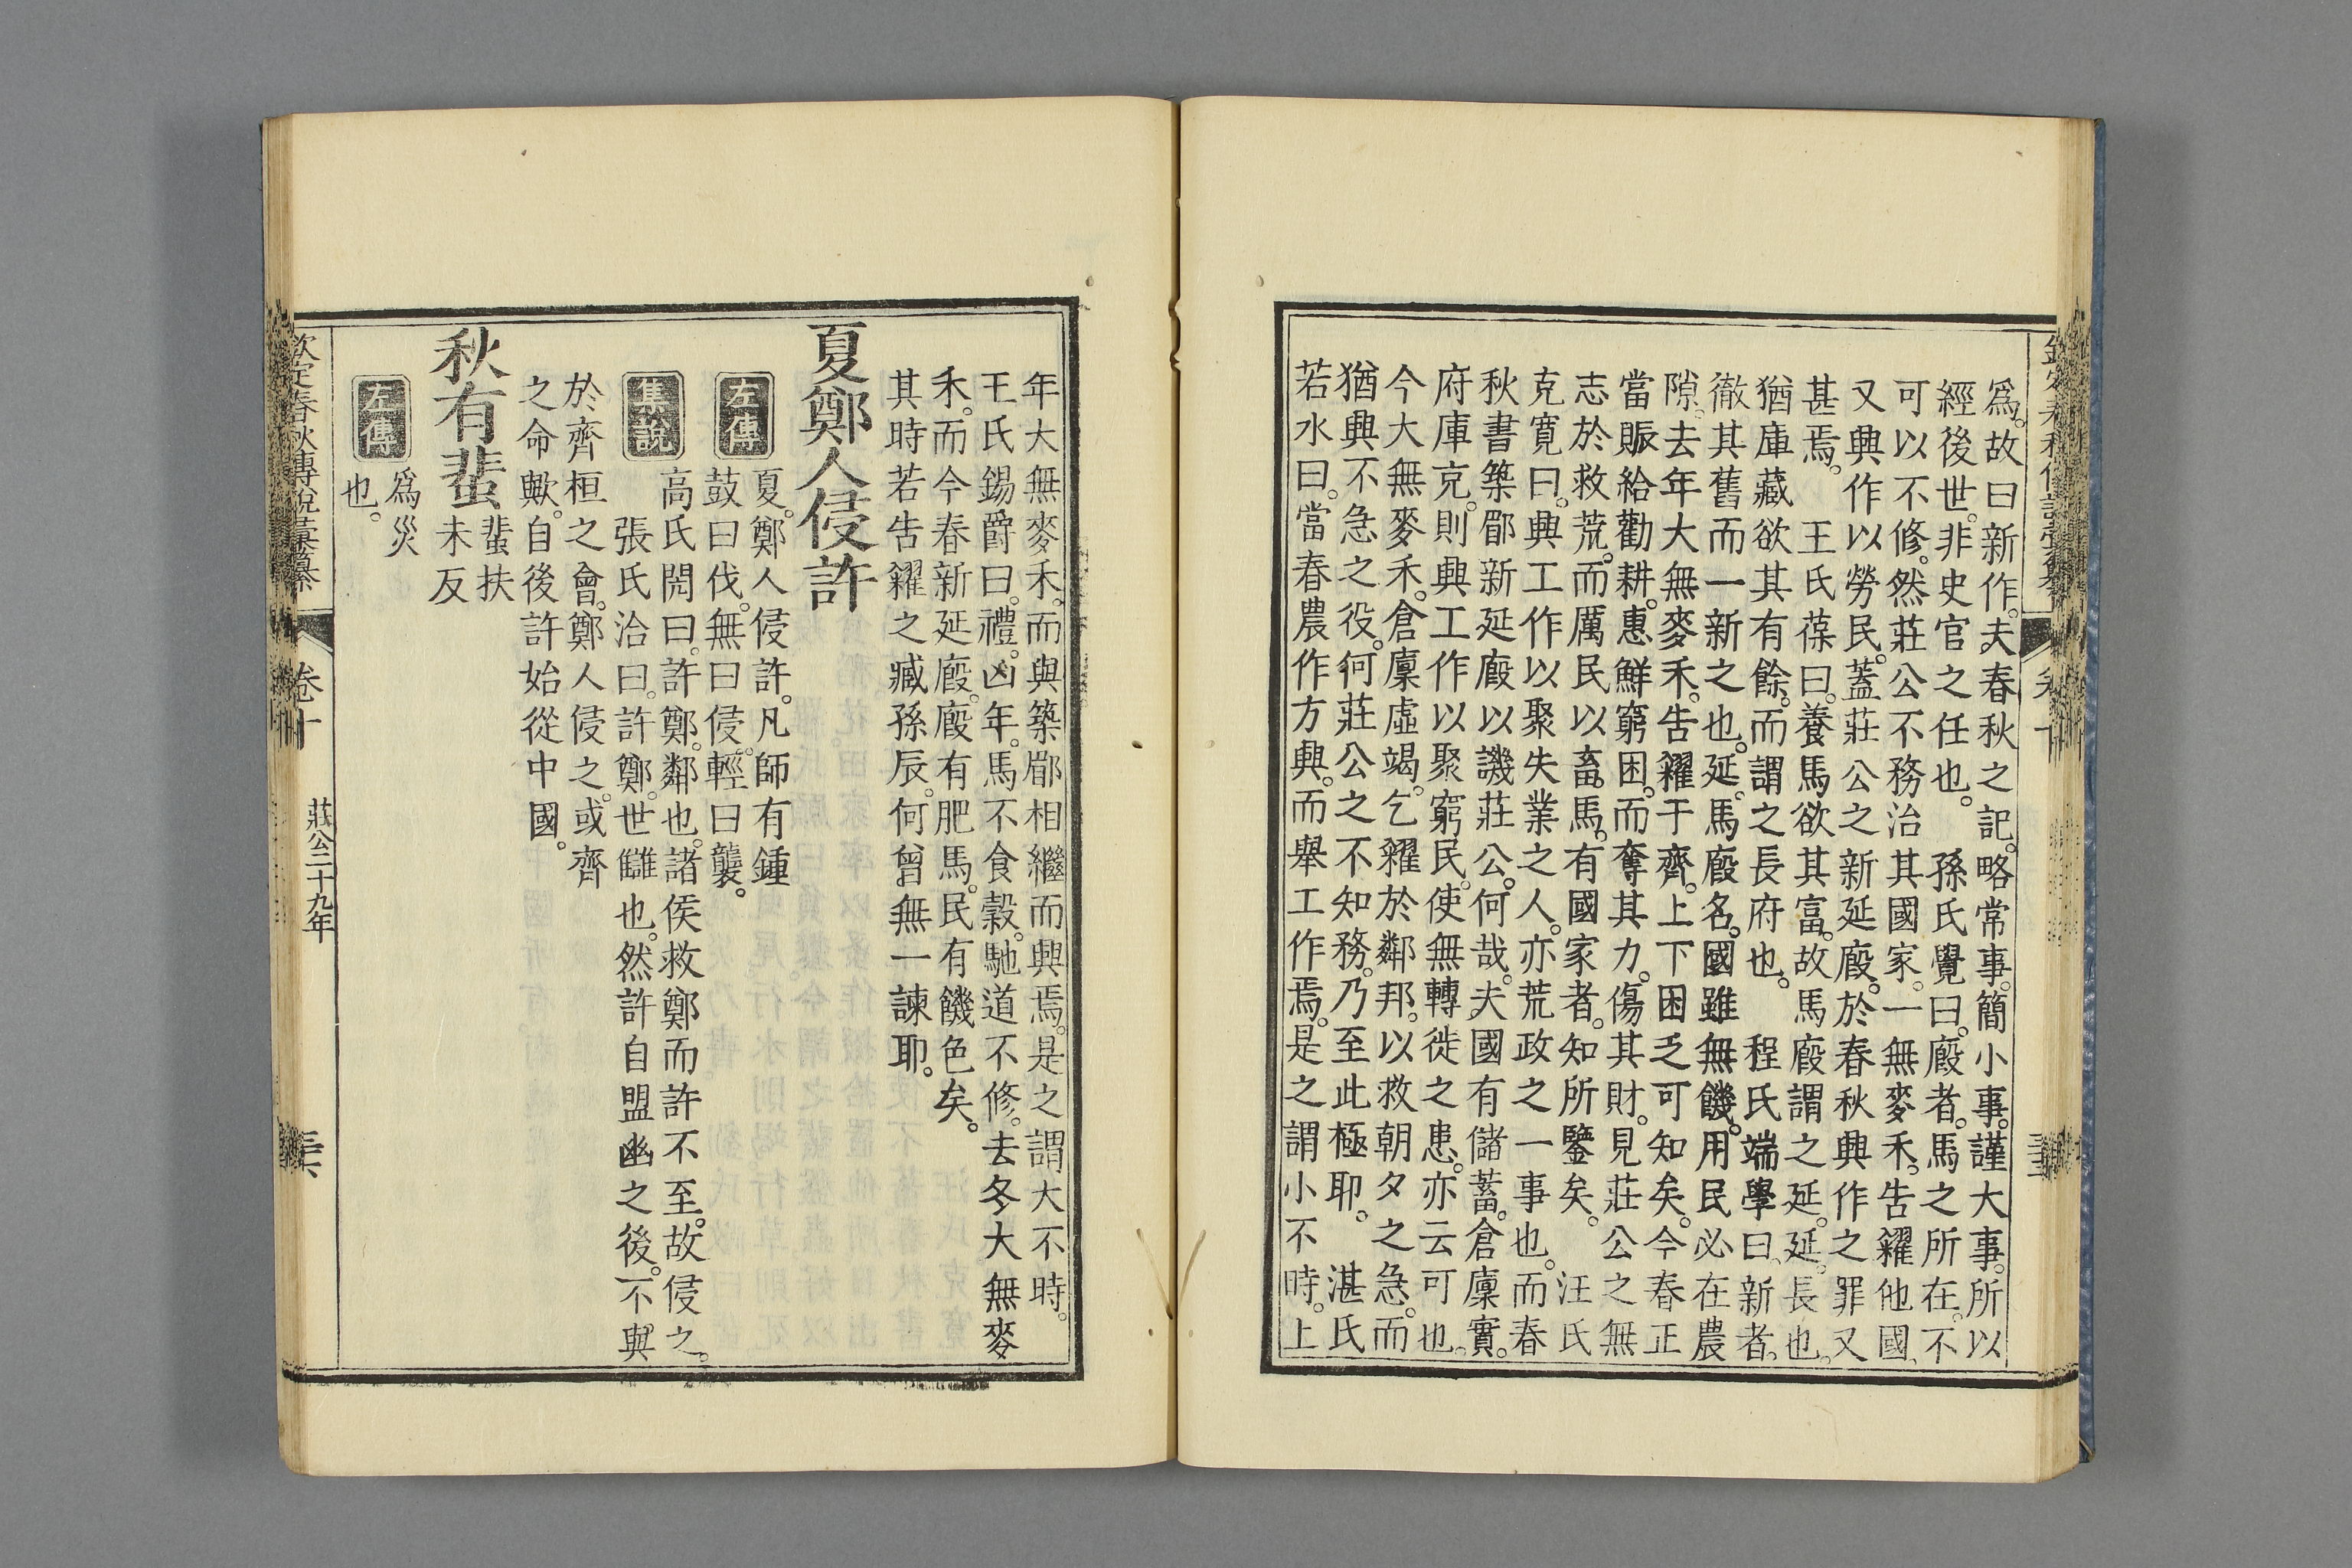 爲。故曰新作。夫春秋之記。略常事。簡小事。謹大事。所以
經後世。非史官之任也。　孫氏覺曰。廏者。馬之所在。不
可以不修。然莊公不務治其國家。一無麥禾。告糴他國。
又興作以勞民。蓋莊公之新延廏。於春秋興作之罪又
甚焉。　王氏葆曰。養馬欲其富。故馬廏謂之延。延。長也。
猶庫藏欲其有餘。而謂之長府也。　程氏端學曰。新者。
徹其舊而一新之也。延。馬廏名。國雖無饑。用民必在農
隙。去年大無麥禾。告糴于齊。上下困乏可知矣。今春正
當賑給勸耕。惠鮮窮困。而奪其力。傷其財。見莊公之無
志於救荒。而厲民以畜馬。有國家者。知所鑒矣。　汪氏
克寬曰。興工作以聚失業之人。亦荒政之一事也。而春
秋書築郿新延廏以譏莊公。何哉。夫國有儲蓄。倉廩實。
府庫克。則興工作以聚窮民。使無轉徙之患。亦云可也。
今大無麥禾。倉廩虛竭。乞糴於鄰邦。以救朝夕之急。而
猶興不急之役。何莊公之不知務。乃至此極耶。　湛氏
若水曰。當春農作方興。而舉工作焉。是之謂小不時。上
年大無麥禾。而與築郿相繼而興焉。是之謂大不時。
王氏錫爵曰。禮。凶年。馬不食穀。馳道不修。去冬大無麥
禾。而今春新延廏。廏有肥馬。民有饑色矣。
其時若告糴之臧孫辰。何曾無一諫耶。
夏鄭人侵許
左傳
夏。鄭人侵許。凡師有鍾
鼓曰伐。無曰侵。輕曰襲。
集說
高氏閌曰。許鄭。鄰也。諸侯救鄭而許不至。故侵之。
張氏洽曰。許鄭。世讎也。然許自盟幽之後。不與
於齊桓之會。鄭人侵之。或齊
之命歟。自後許始從中國。
秋有蜚
蜚扶
未反
左傳
爲災
也。
欽定春秋傳說彙纂
卷十
莊公二十九年